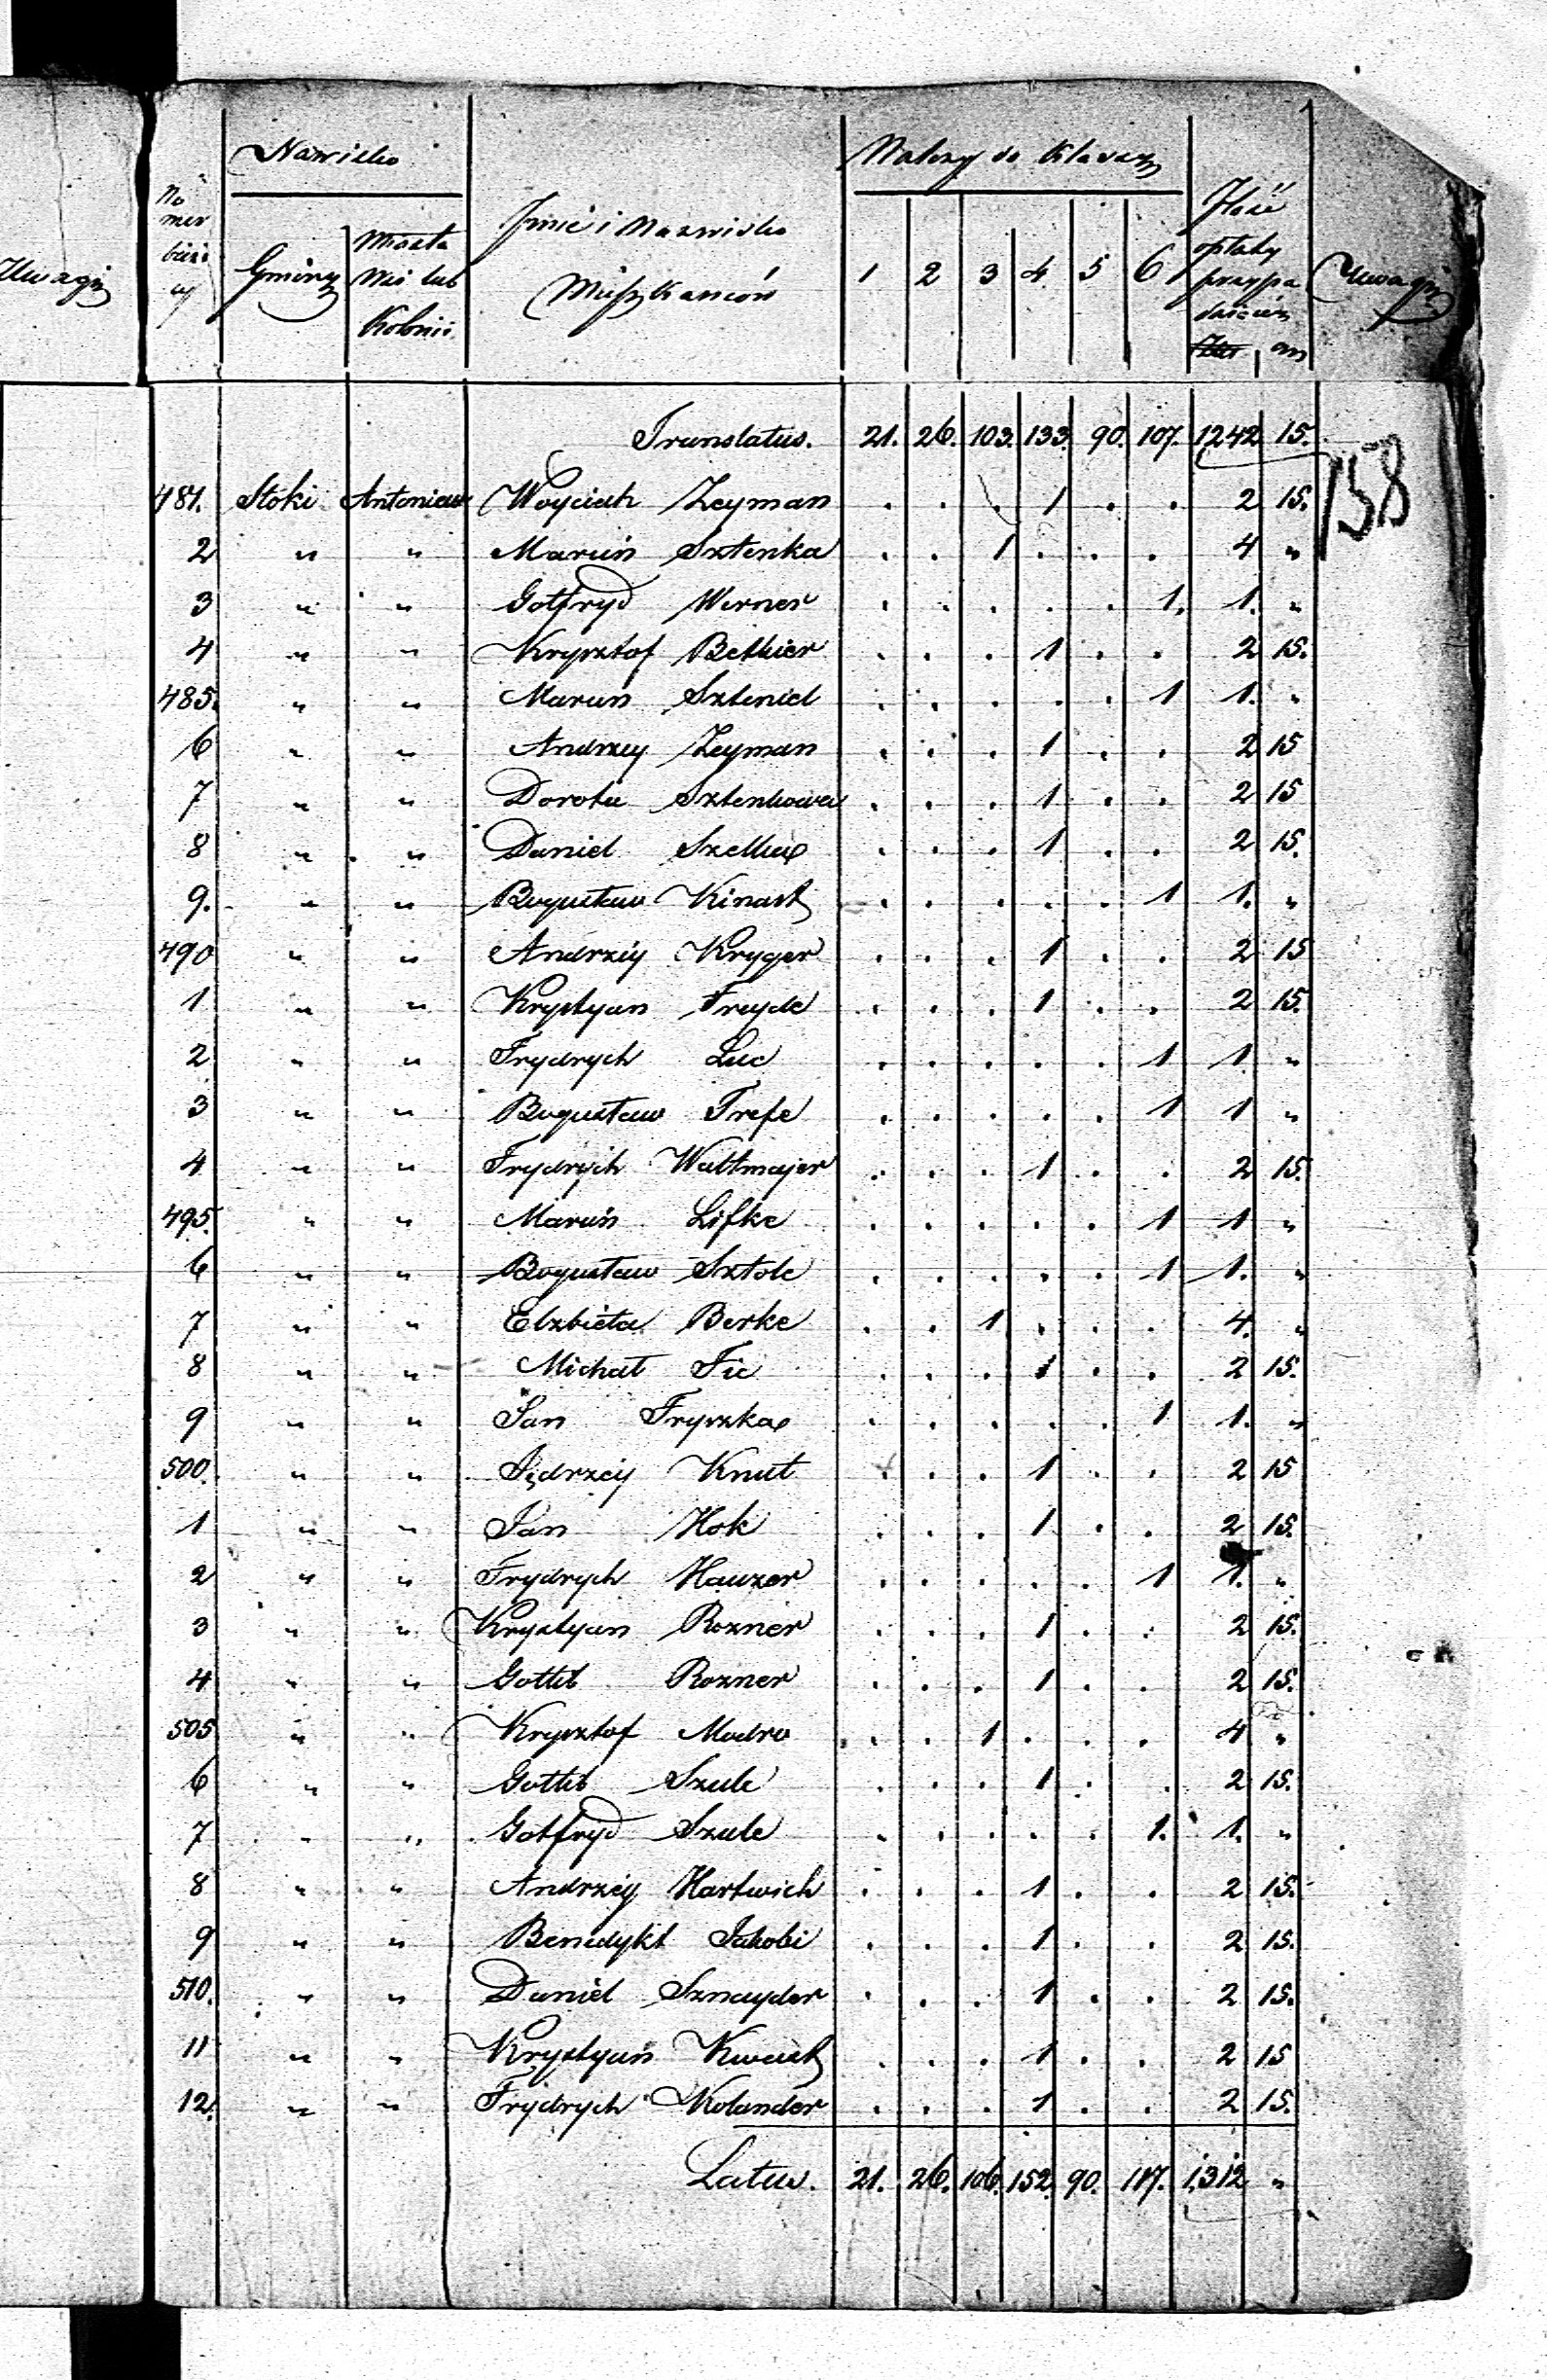 Uwagi
Nazwisko
Należy do Klassy
Nu
mer
bieżą
cy
Gminy
Miasta
Wsi lub
Kolonii
Imie i Nazwisko
Mieszkanców
1 2 3 4. 5 6
Ilość
opłaty
przypa
daiącey
Złot gr
Uwagi
158
Translatus. 21. 26. 103. 133. 90. 107. 1242 15.
481. Stoki Antoniew Woyciech Zeyman . . . 1 . . 2 15.
2 " " Marcin Sztenka . . 1 . . . 4 "
3 " " Gotfryd Werner . . . . . 1. 1. "
4 " " Krysztof Bethier . . . 1 . . 2 15.
485. " " Marcin Sztenid . . . . . 1 1. "
6 " " Andrzey Zeyman . . . 1 . . 2 15
7 " " Dorota Sztenkowa . . . 1 . . 2 15
8 " " Daniel . . . 1 . . 2 15.
9. " " Bogusław Kinast . . . . . 1 1. "
490 " " Andrzéy Kryger . . . 1 . . 2 15
1 " " Krystyan Freyde . . . 1 . . 2 15.
2 " " Frydrych Luc . . . . . 1 1 "
3 " " Bogusław Trefe . . . . . 1 1 "
4 " " Frydrych Waltmajer . . . 1 . . 2 15.
495. " " Marcin Lifke . . . . . 1 1 "
6 " " Bogusław Sztole . . . . . 1 1. "
7 " " Elzbiéta Berke . . 1 . . . 4. "
8 " " Michał Fic . . . 1 . . 2 15.
9 " " Jan Fryszka . . . . . 1 1. "
500. " " Jędrzéy Knut . . . 1 . . 2 15
1 " " Jan Hok . . . 1 . . 2 15.
2 " " Frydrych Hauzer . . . . . 1 1. "
3 " " Krystyan Rozner . . . 1 . . 2 15.
4 " " Gottlib Rozner . . . 1 . . 2 15.
505 " " Krysztof Modro . . 1 . . . 4 "
6 " " Gottlib Szulc . . . 1 . . 2 15.
7 " " Gotfryd Szulc . . . . . 1. 1. "
8 " " Andrzéy Hartwich . . . 1 . . 2 15.
9 " " Benedykt Jakobi . . . 1 . . 2 15.
510. " " Daniél Sznayder . . . 1 . . 2 15.
11 " " Krystyan Kwast . . . 1 . . 2 15
12. " " Frydrych Kolander . . . 1 . . 2 15.
Latus. 21. 26. 106. 152. 90. 117. 1,312 "